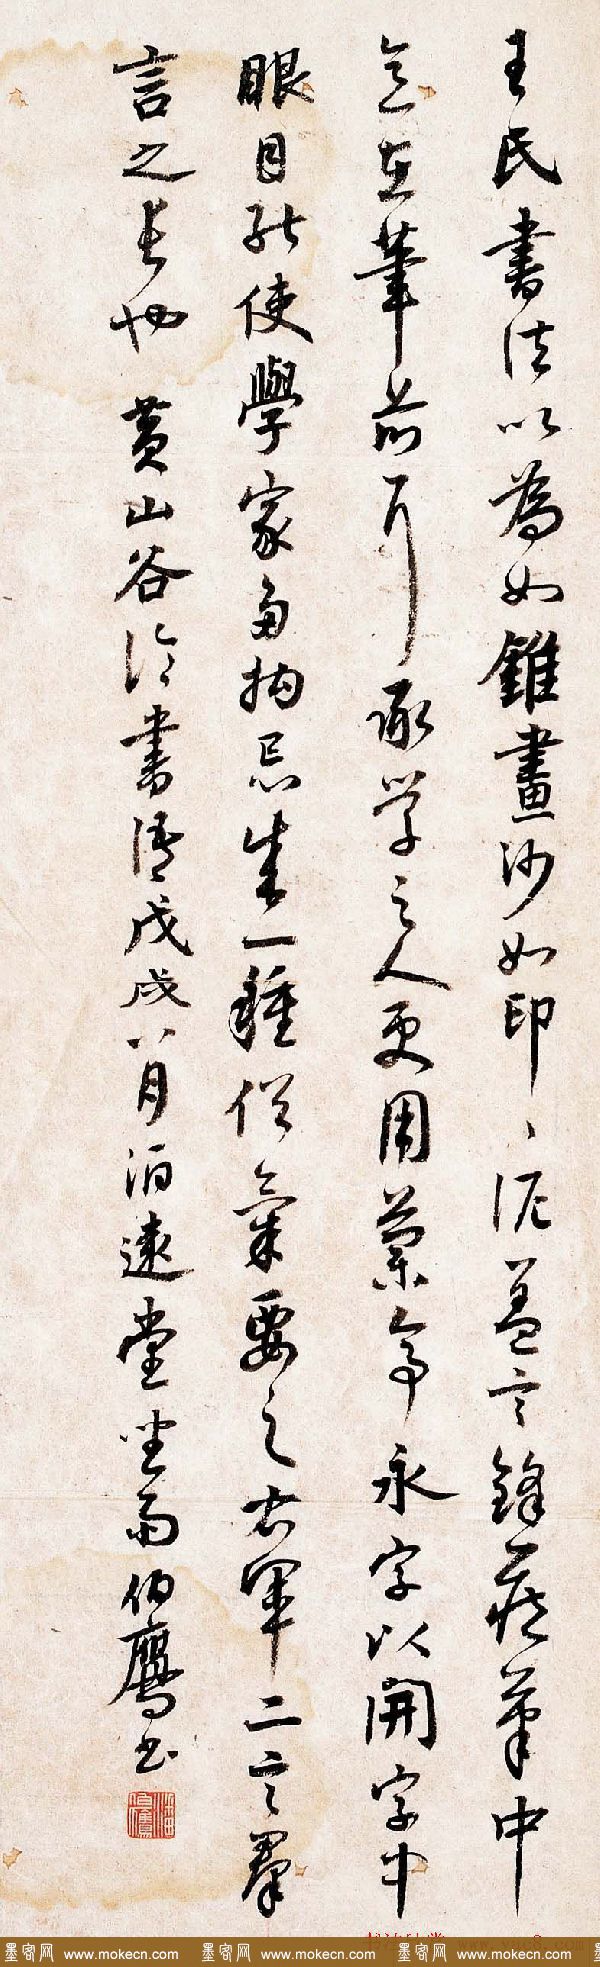 王氏書法以為如錐畫沙如印〻泥蓋言鋒藏筆中
意在筆前耳承学之人更用蘭亭永字以開字中
眼目能使學家多拘忌生一種俗氣要之右軍二言羣
言之長也 黄山谷論書語戊戌八月泊遠堂坐雨伯鷹书
潘伯鷹
墨客网 www.mokecn.com 墨客网 www.mokecn.com 墨客网 www.mokecn.com